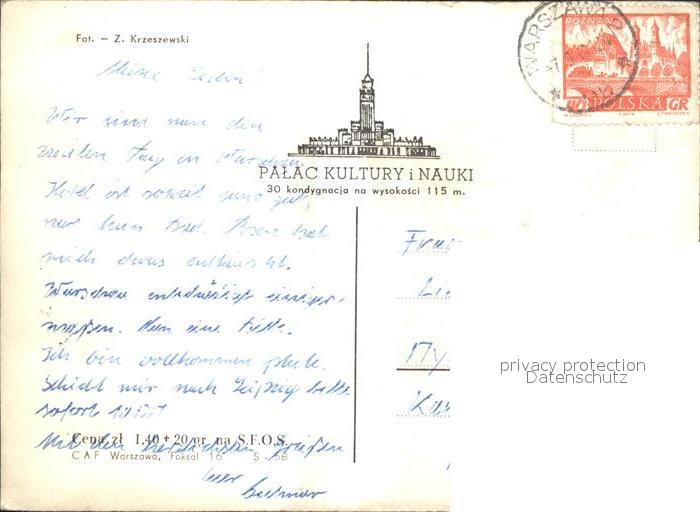 Fot. — Z. Krzeszewski
WARSZAWA
POZNAŃ
40 POLSKA GR
PAŁAC KULTURY i NAUKI
30 kondygnacja na wysokości 115 m.
Meine Lieben!
Wir sind nun den
zweiten Tag in Warschau.
Hotel ist soweit ganz gut,
nur kein Bad. Posen hat
mich etwas enttäuscht.
Warschau entschädigt einiger-
maßen. Nun eine Bitte.
Ich bin vollkommen pleite.
Schickt mir nach Leipzig bitte
sofort
Cena zł 1,40 + 20 gr na S.F.O.S.
Mit den herzlichsten Grüßen
CAF Warszawa, Foksal 16 S-68
Euer
Frau
privacy protection
Datenschutz